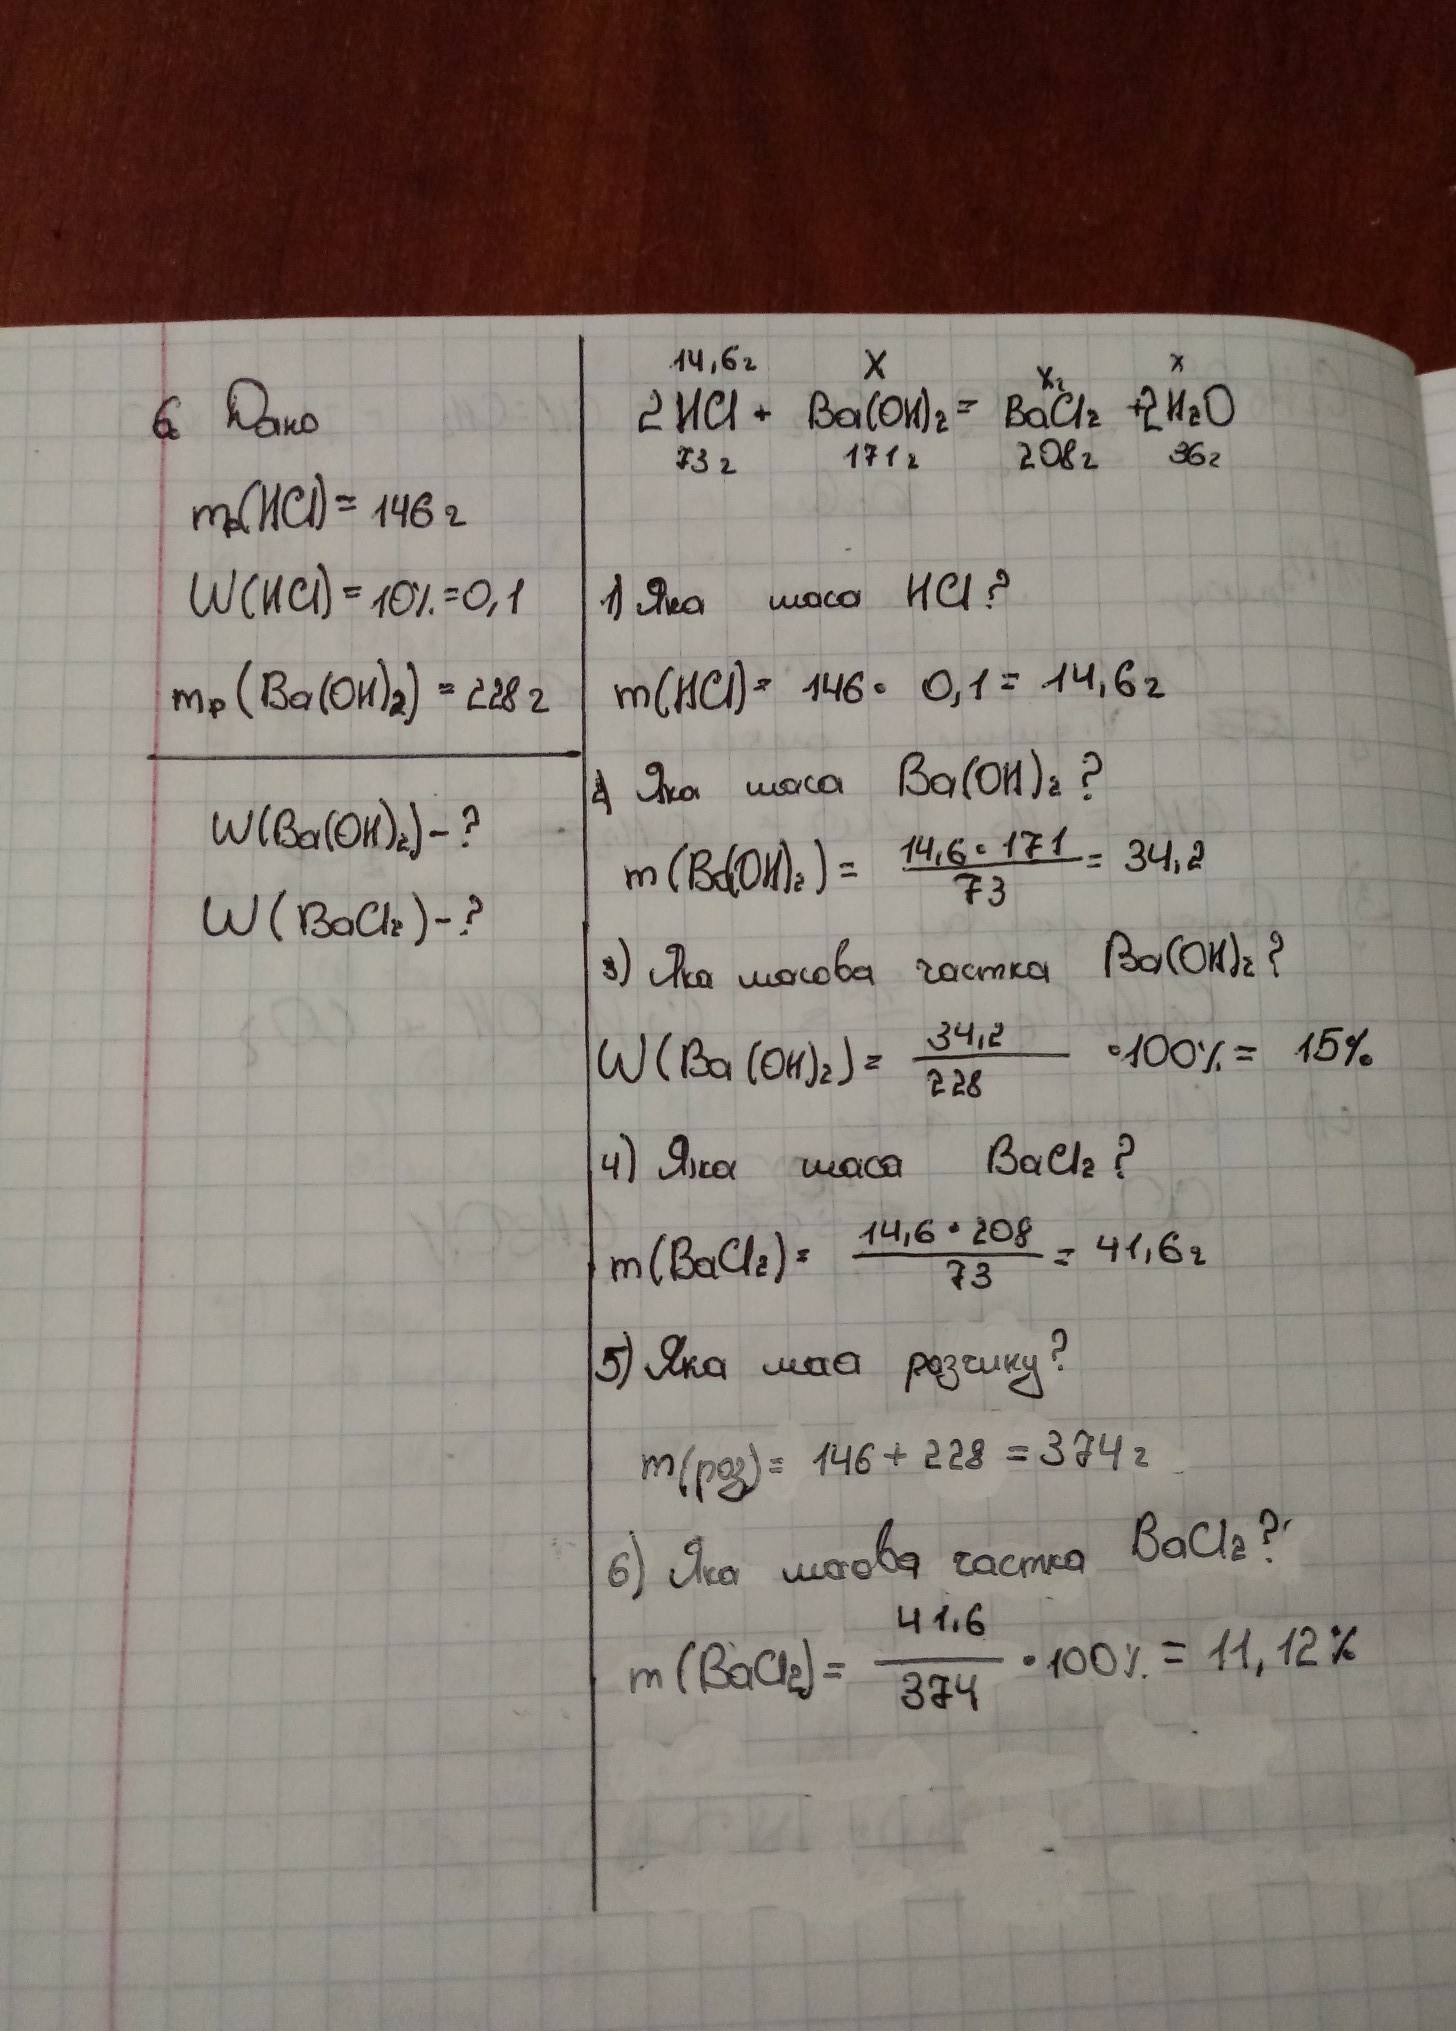 6. Дано
mр(HCl) = 146 г
W(HCl) = 10% = 0,1
mр(Ba(OH)₂) = 228 г
W(Ba(OH)₂) - ?
W(BaCl₂) - ?
14,6г X Xг x
2HCl + Ba(OH)₂ = BaCl₂ + 2H₂O
73г 171г 208г 36г
1) Яка маса HCl?
m(HCl) = 146 · 0,1 = 14,6 г
2) Яка маса Ba(OH)₂?
m(Ba(OH)₂) = 14,6 · 171 / 73 = 34,2
3) Яка масова частка Ba(OH)₂?
W(Ba(OH)₂) = 34,2 / 228 · 100% = 15%
4) Яка маса BaCl₂?
m(BaCl₂) = 14,6 · 208 / 73 = 41,6 г
5) Яка маса розчину?
m(роз) = 146 + 228 = 374 г
6) Яка масова частка BaCl₂?
m(BaCl₂) = 41,6 / 374 · 100% = 11,12%